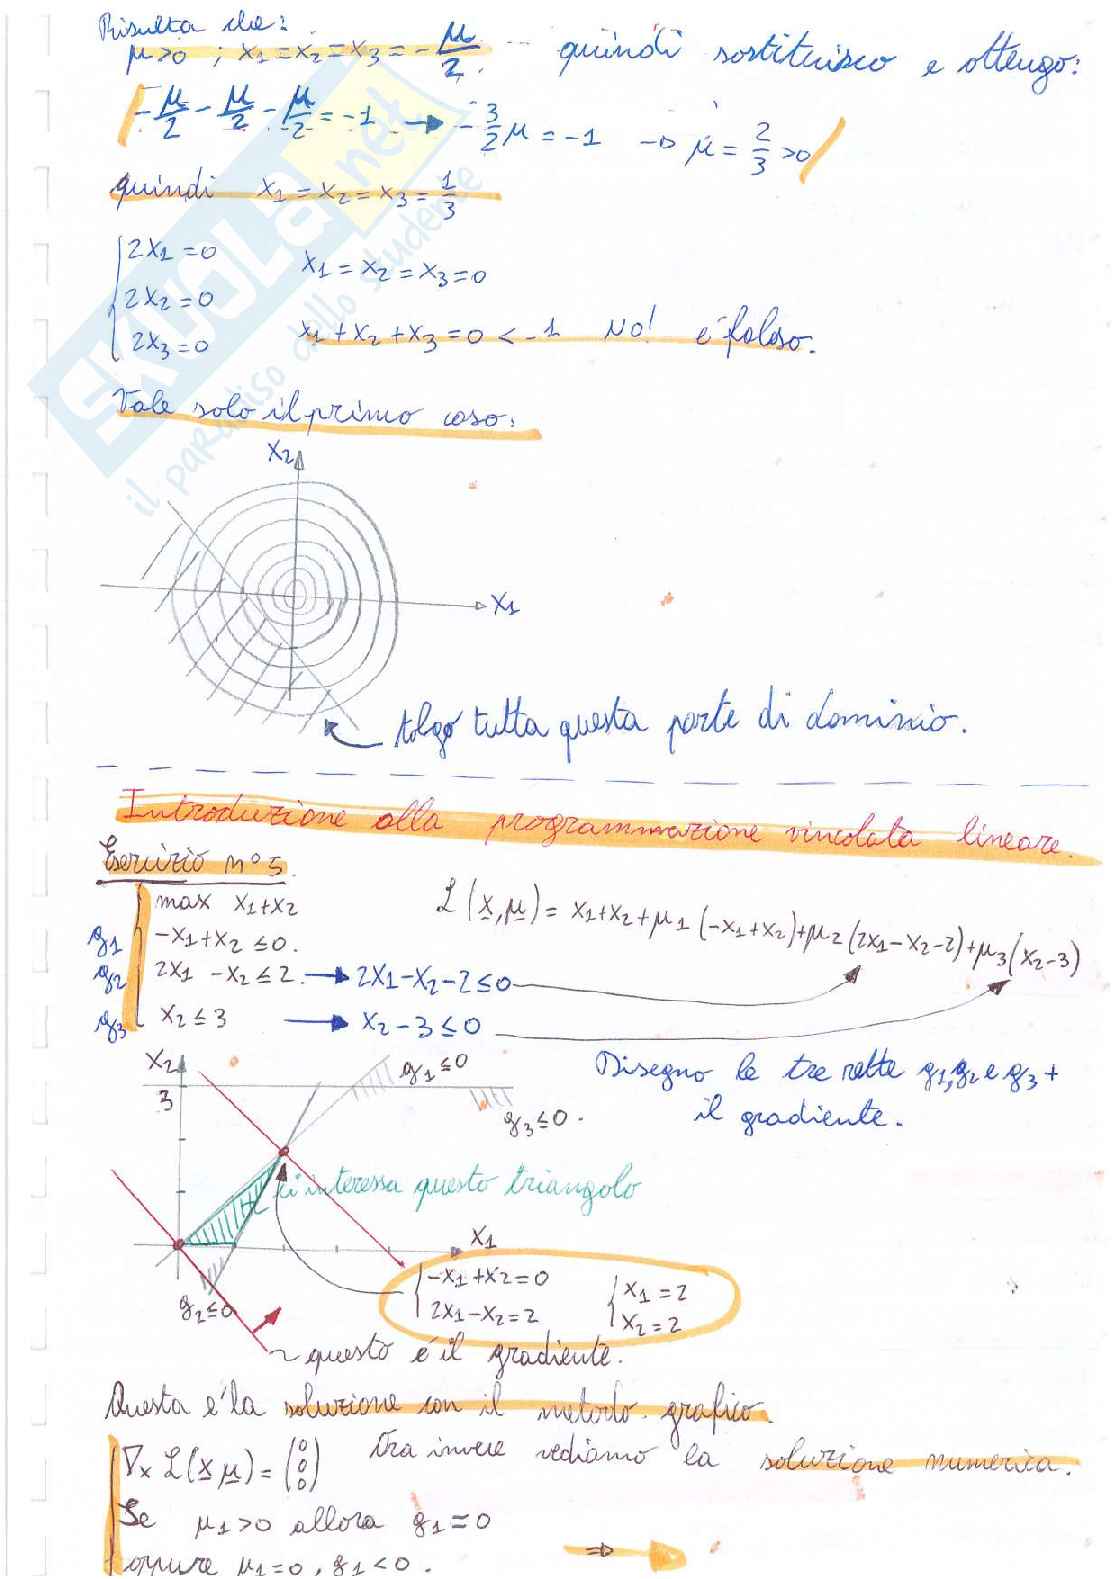 Risulta che:
μ>0 ; x1=x2=x3= -μ/2 quindi sostituisco e ottengo:
-μ/2 - μ/2 - μ/2 = -1 → -3/2 μ = -1 → μ = 2/3 >0
quindi x1 = x2 = x3 = 1/3
2x1 = 0
2x2 = 0
2x3 = 0
x1 = x2 = x3 = 0
x1 + x2 + x3 = 0 < -1 NO! è falso.
Vale solo il primo caso:
x2
x1
tolgo tutta questa parte di dominio.
Introduzione alla programmazione vincolata lineare.
Esercizio n°5.
max x1+x2
g1 -x1+x2 ≤ 0.
g2 2x1 - x2 ≤ 2. → 2x1-x2-2 ≤ 0
g3 x2 ≤ 3 → x2-3 ≤ 0
L(x,μ) = x1+x2+μ1(-x1+x2)+μ2(2x1-x2-2)+μ3(x2-3)
Disegno le tre rette g1,g2 e g3 +
il gradiente.
x2
3
g1≤0
g3≤0.
Ci interessa questo triangolo
x1
g2≤0
-x1+x2=0
2x1-x2=2
x1=2
x2=2
questo è il gradiente.
Questa è la soluzione con il metodo grafico.
∇x L(x μ) = (0 0 0) Ora invece vediamo la soluzione numerica.
Se μ1>0 allora g1=0
oppure μ1=0, g1<0.
⇒
SKUOLA.net
il paradiso dello studente